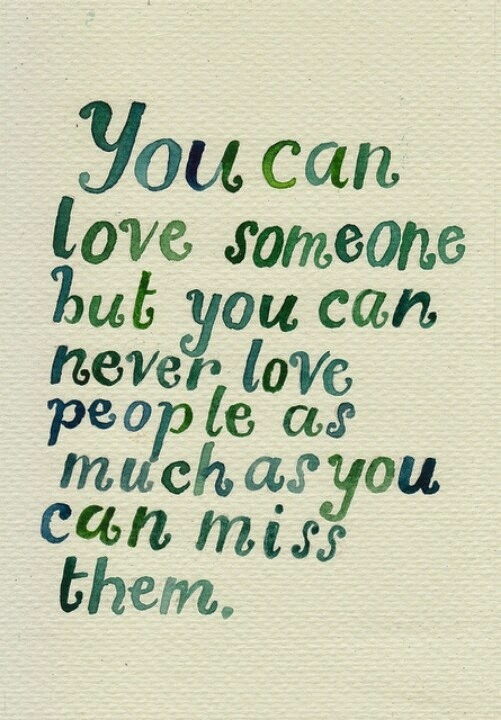 You can
love someone
but you can
never love
people as
much as you
can miss
them.